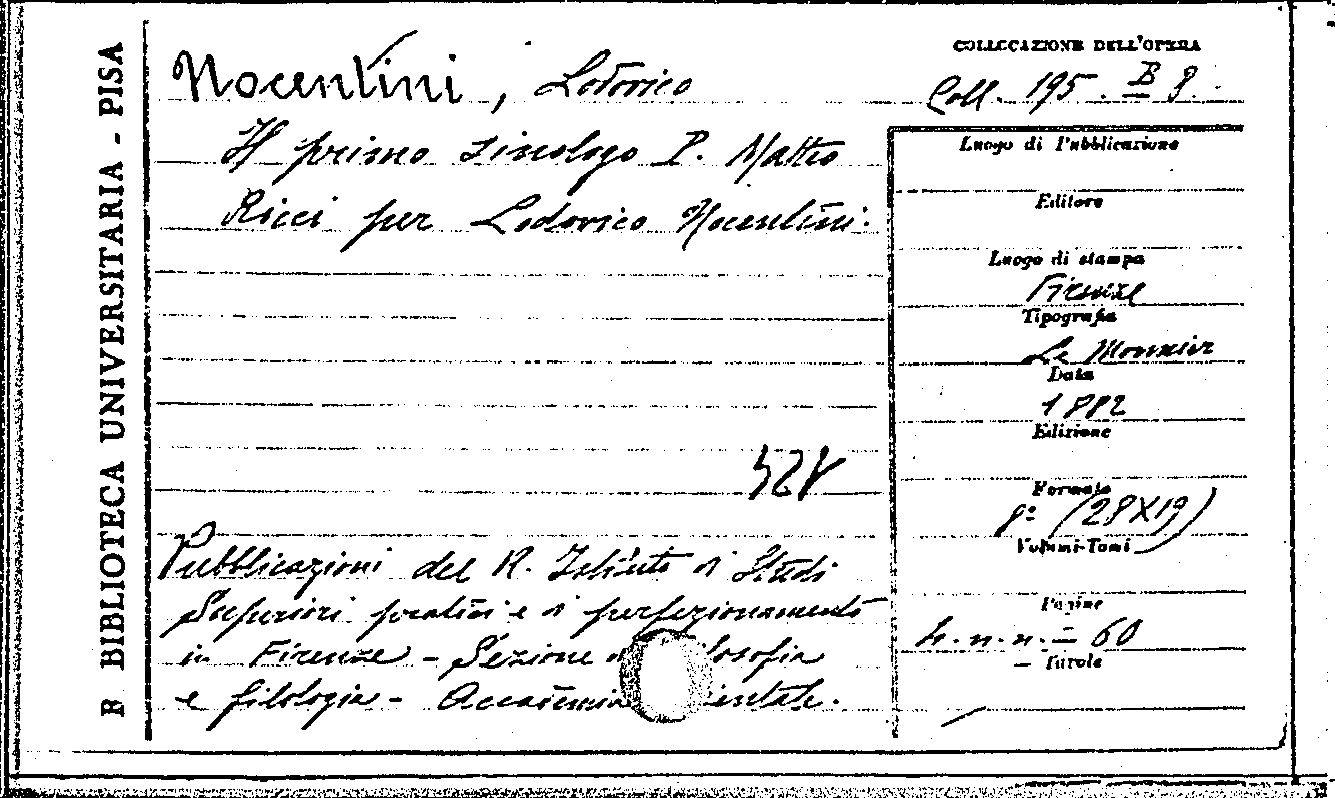 B BIBLIOTECA UNIVERSITARIA - PISA
Nocentini, Lodovico
Il primo sinologo P. Matteo
Ricci per Lodovico Nocentini.
528
Pubblicazioni del R. Istituto di Studi
Superiori pratici e di perfezionamento
in Firenze - Sezione di losofia
e filologia - Accademia ientale.
COLLOCAZIONE DELL'OPERA
Coll. 195. B 9.
Luogo di Pubblicazione
Editore
Luogo di stampa
Firenze
Tipografia
Le Monnier
Data
1882
Edizione
Formato
8º (28X19)
Volumi-Tomi
Pagine
h. n. n. - 60
- Tavole